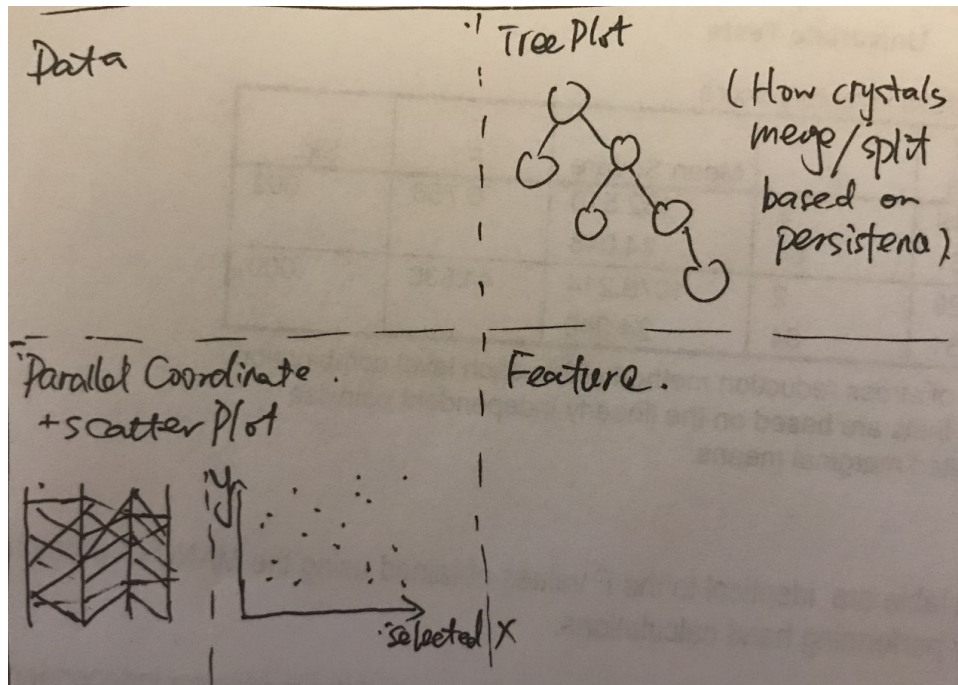 Data
Tree Plot
(How crystals
merge/split
based on
persistena)
Parallel Coordinate.
+scatter Plot
y
selected X
Feature.